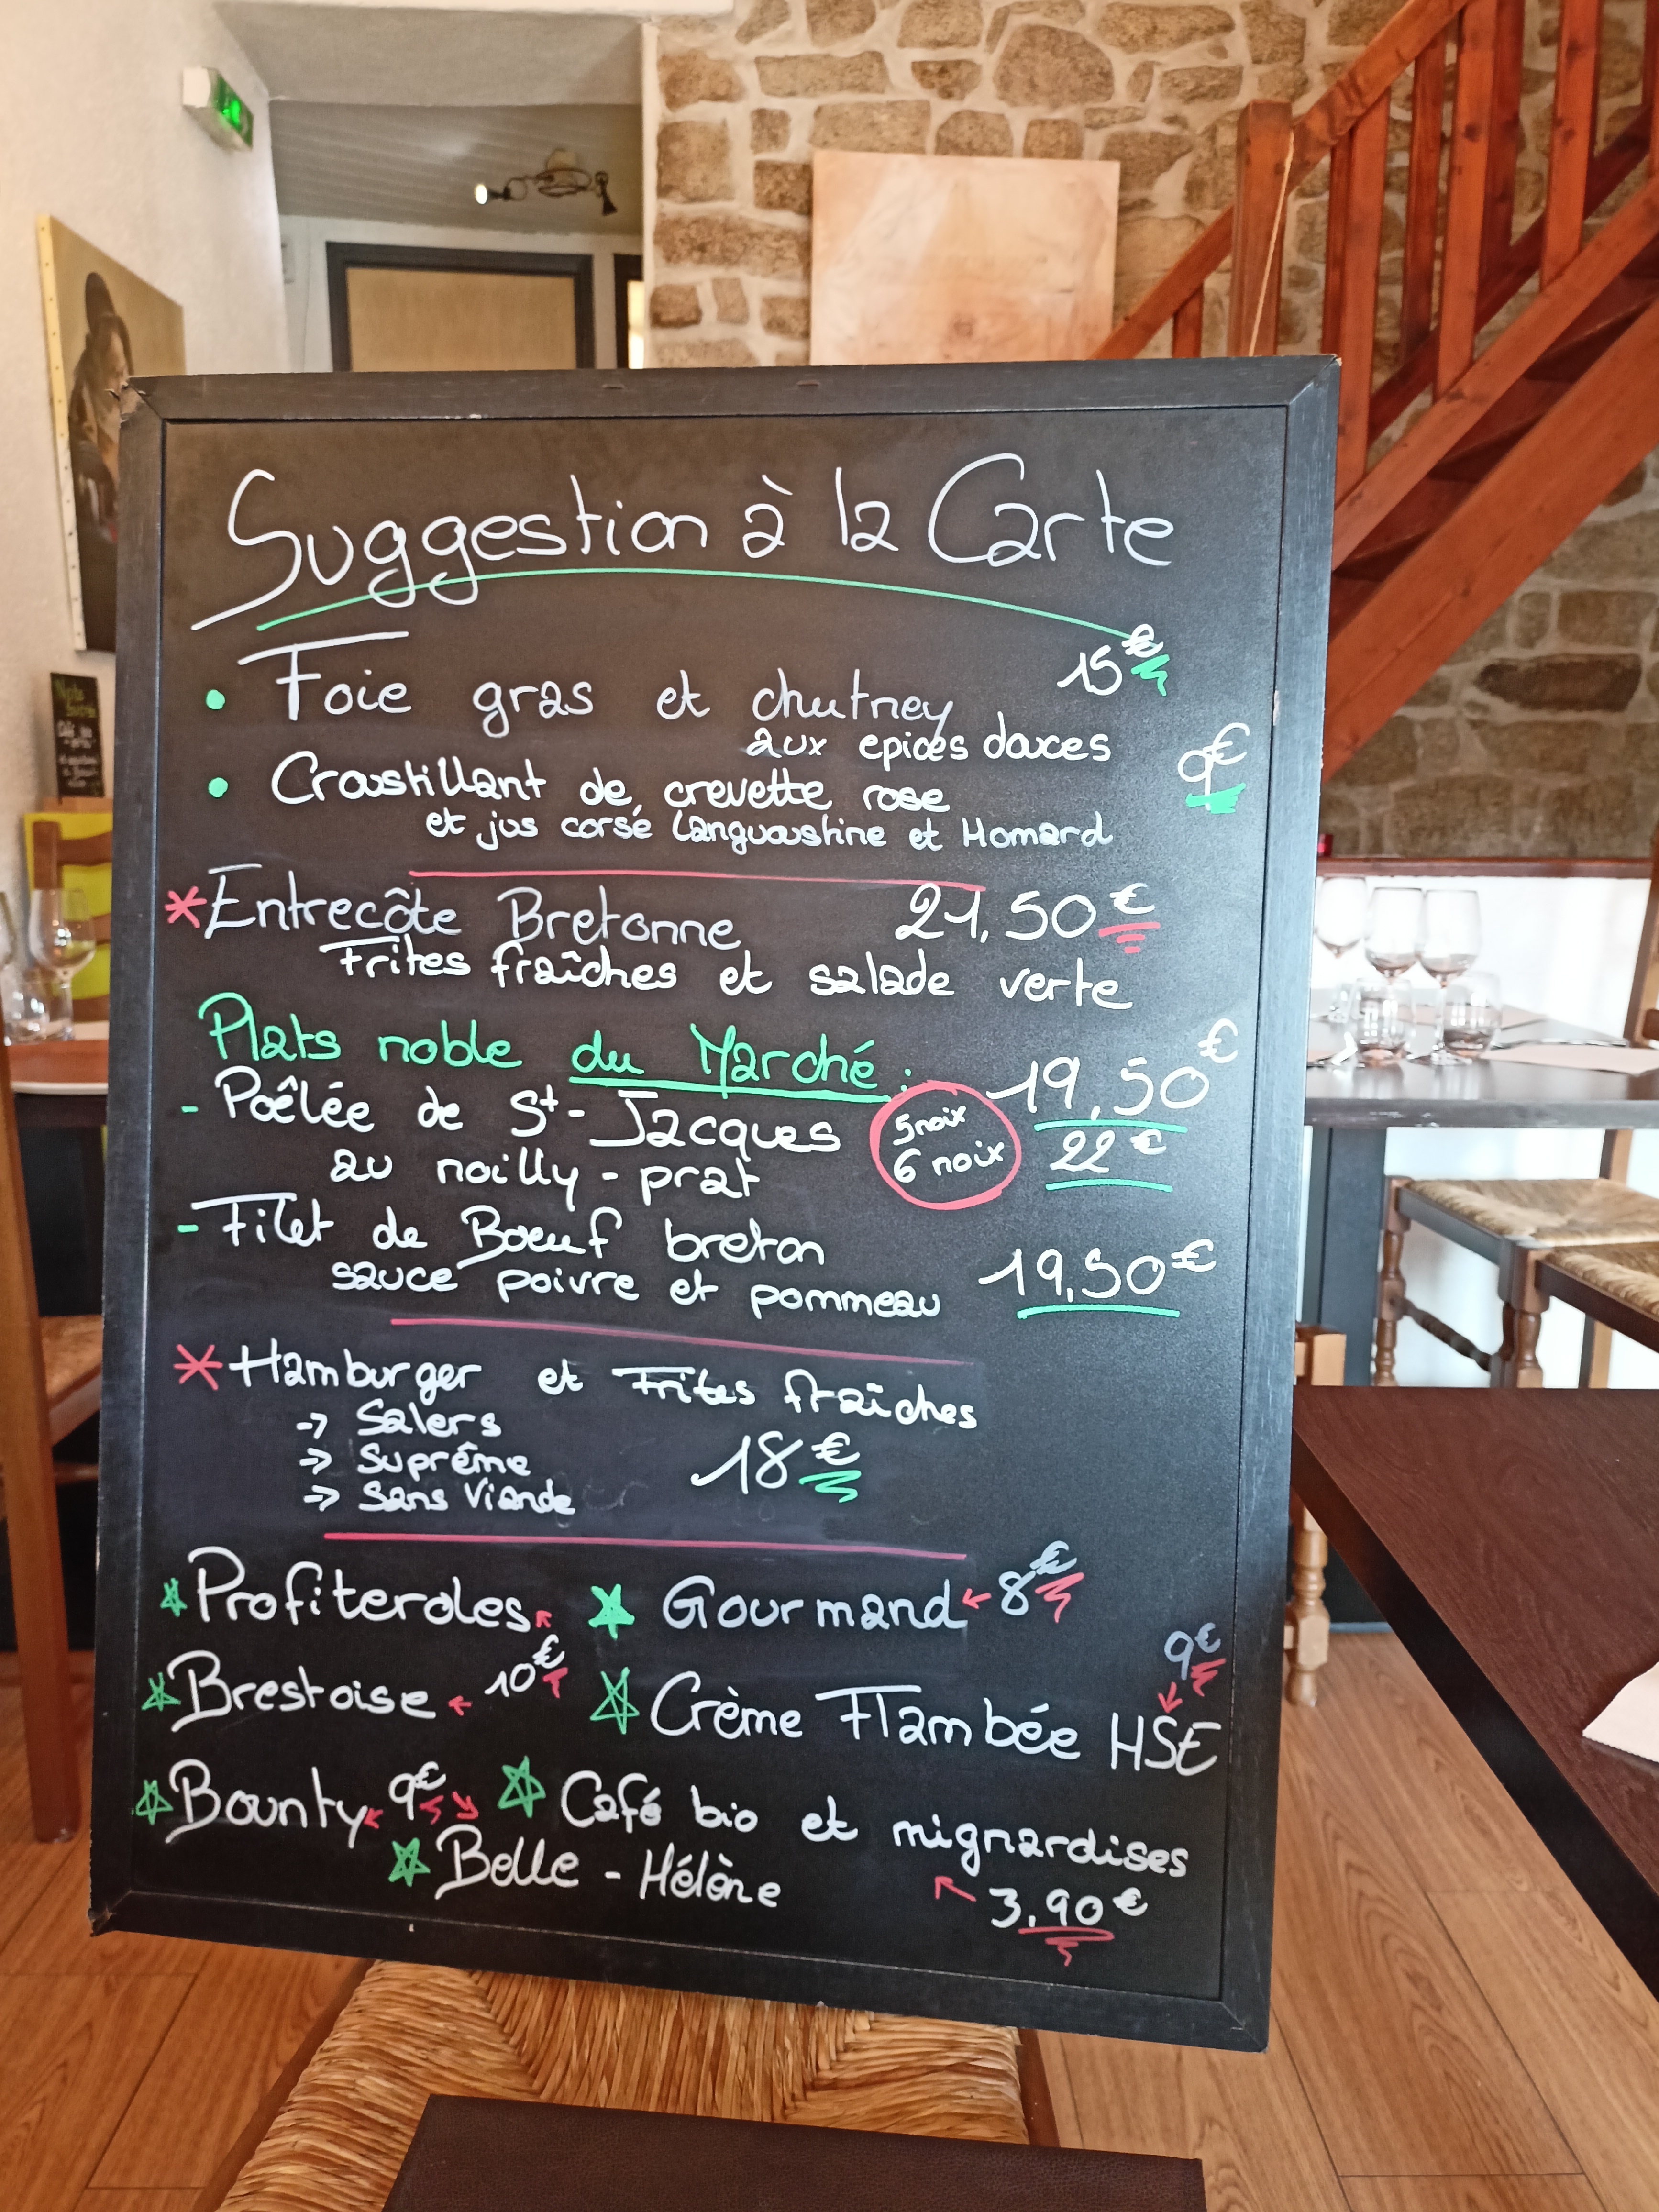 Suggestion à la Carte
• Foie gras et chutney 15€
aux epices douces
• Croustillant de crevette rose 9€
et jus corsé Languoustine et Homard
* Entrecôte Bretonne 21,50€
Frites fraîches et salade verte
Plats noble du Marché :
- Poêlée de St-Jacques 5 noix 19,50€
au noilly-prat 6 noix 22€
- Filet de Boeuf breton
sauce poivre et pommeau 19,50€
* Hamburger et Frites fraîches
→ Salers
→ Suprême 18€
→ Sans Viande
Profiteroles Gourmand ← 8€
Brestoise ← 10€ Crème Flambée HSE 9€
Bounty ← 9€ → Café bio et mignardises
Belle-Hélène 3,90€